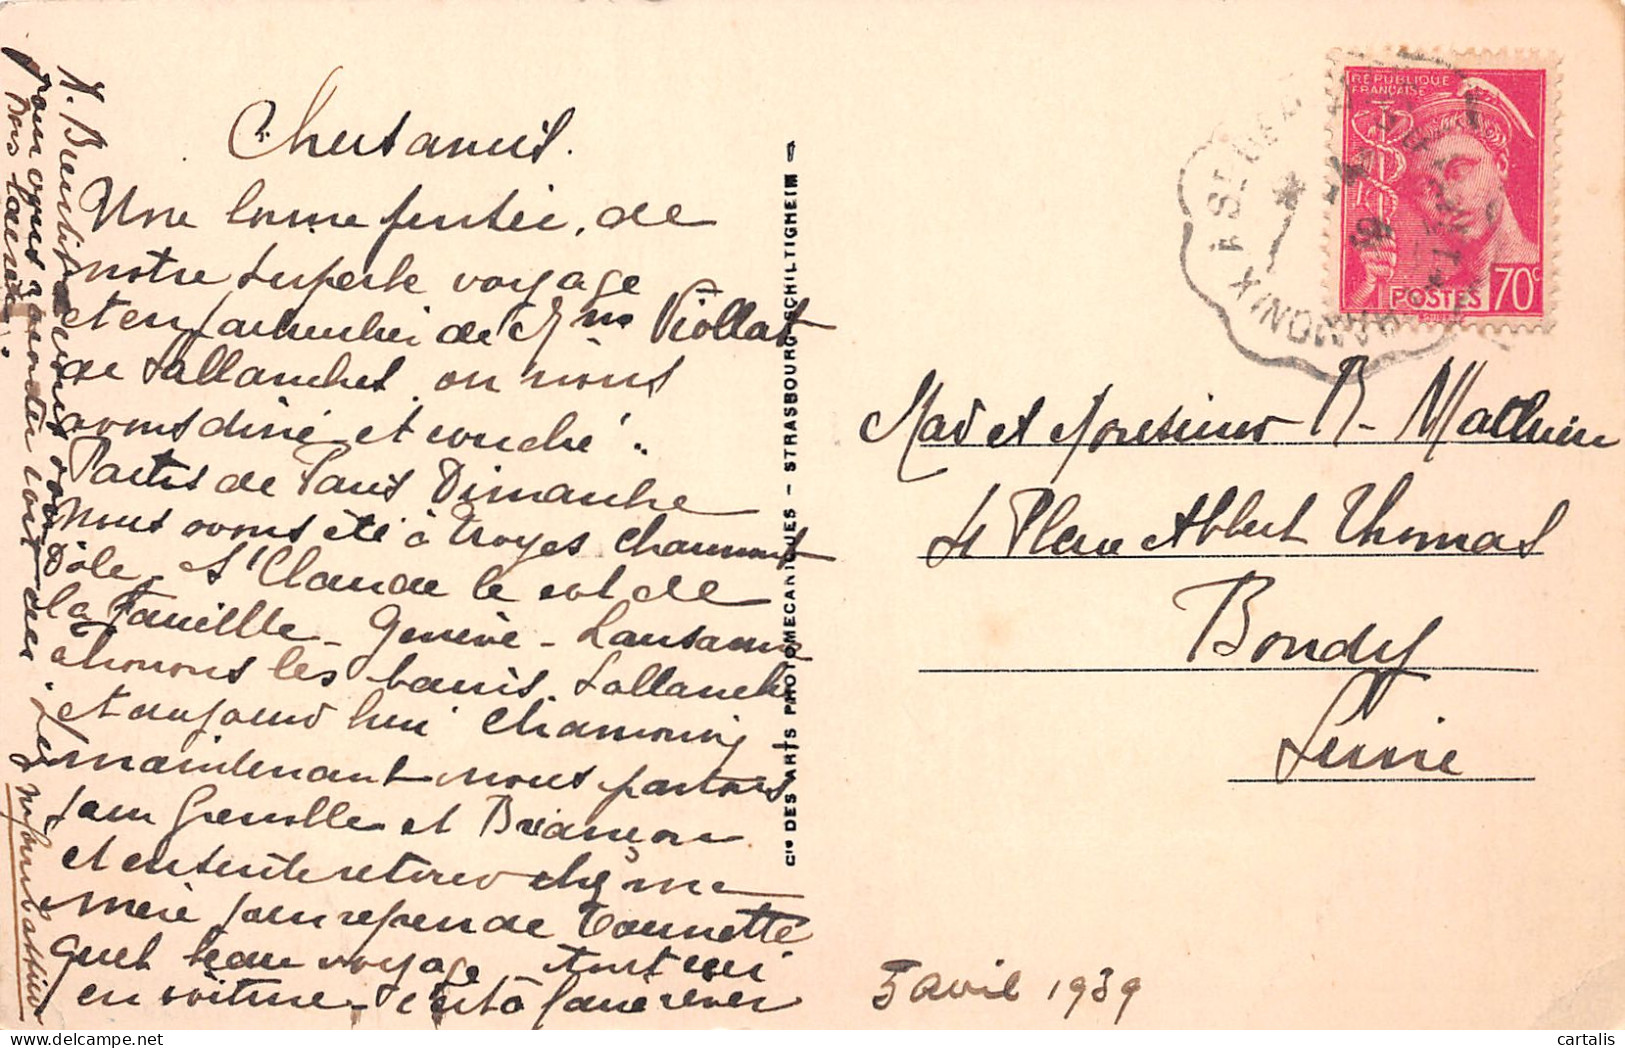 Chers amis.
Une bonne pensée, de
notre superbe voyage
et en particulier de Mme Viollat
de Sallanches, ou nous
avons diné et couché..
Partis de Paris Dimanche
Nous avons été à Troyes Chaumont
Dôle, St Claude le col de
la Faucille - Genève - Lausanne
Thonon les bains, Sallanche
et aujourd'hui Chamonix
maintenant nous partons
pour Grenoble et Briançon
et ensuite retour chez ma
mère pour reprendre Tounette
quel beau voyage - tout ceci
en voiture - c'est à faire rêver
A. Bientôt de vous voir
pour vous raconter tout cela
Bons baisers.
CIE DES ARTS PHOTOMECANIQUES - STRASBOURG-SCHILTIGHEIM -
RÉPUBLIQUE
FRANÇAISE
POSTES 70c
CHAMONIX A
Mad et Monsieur R- Mathieu
4 Place Albert Thomas
Bondy
Seine
5 avril 1939
cartalis